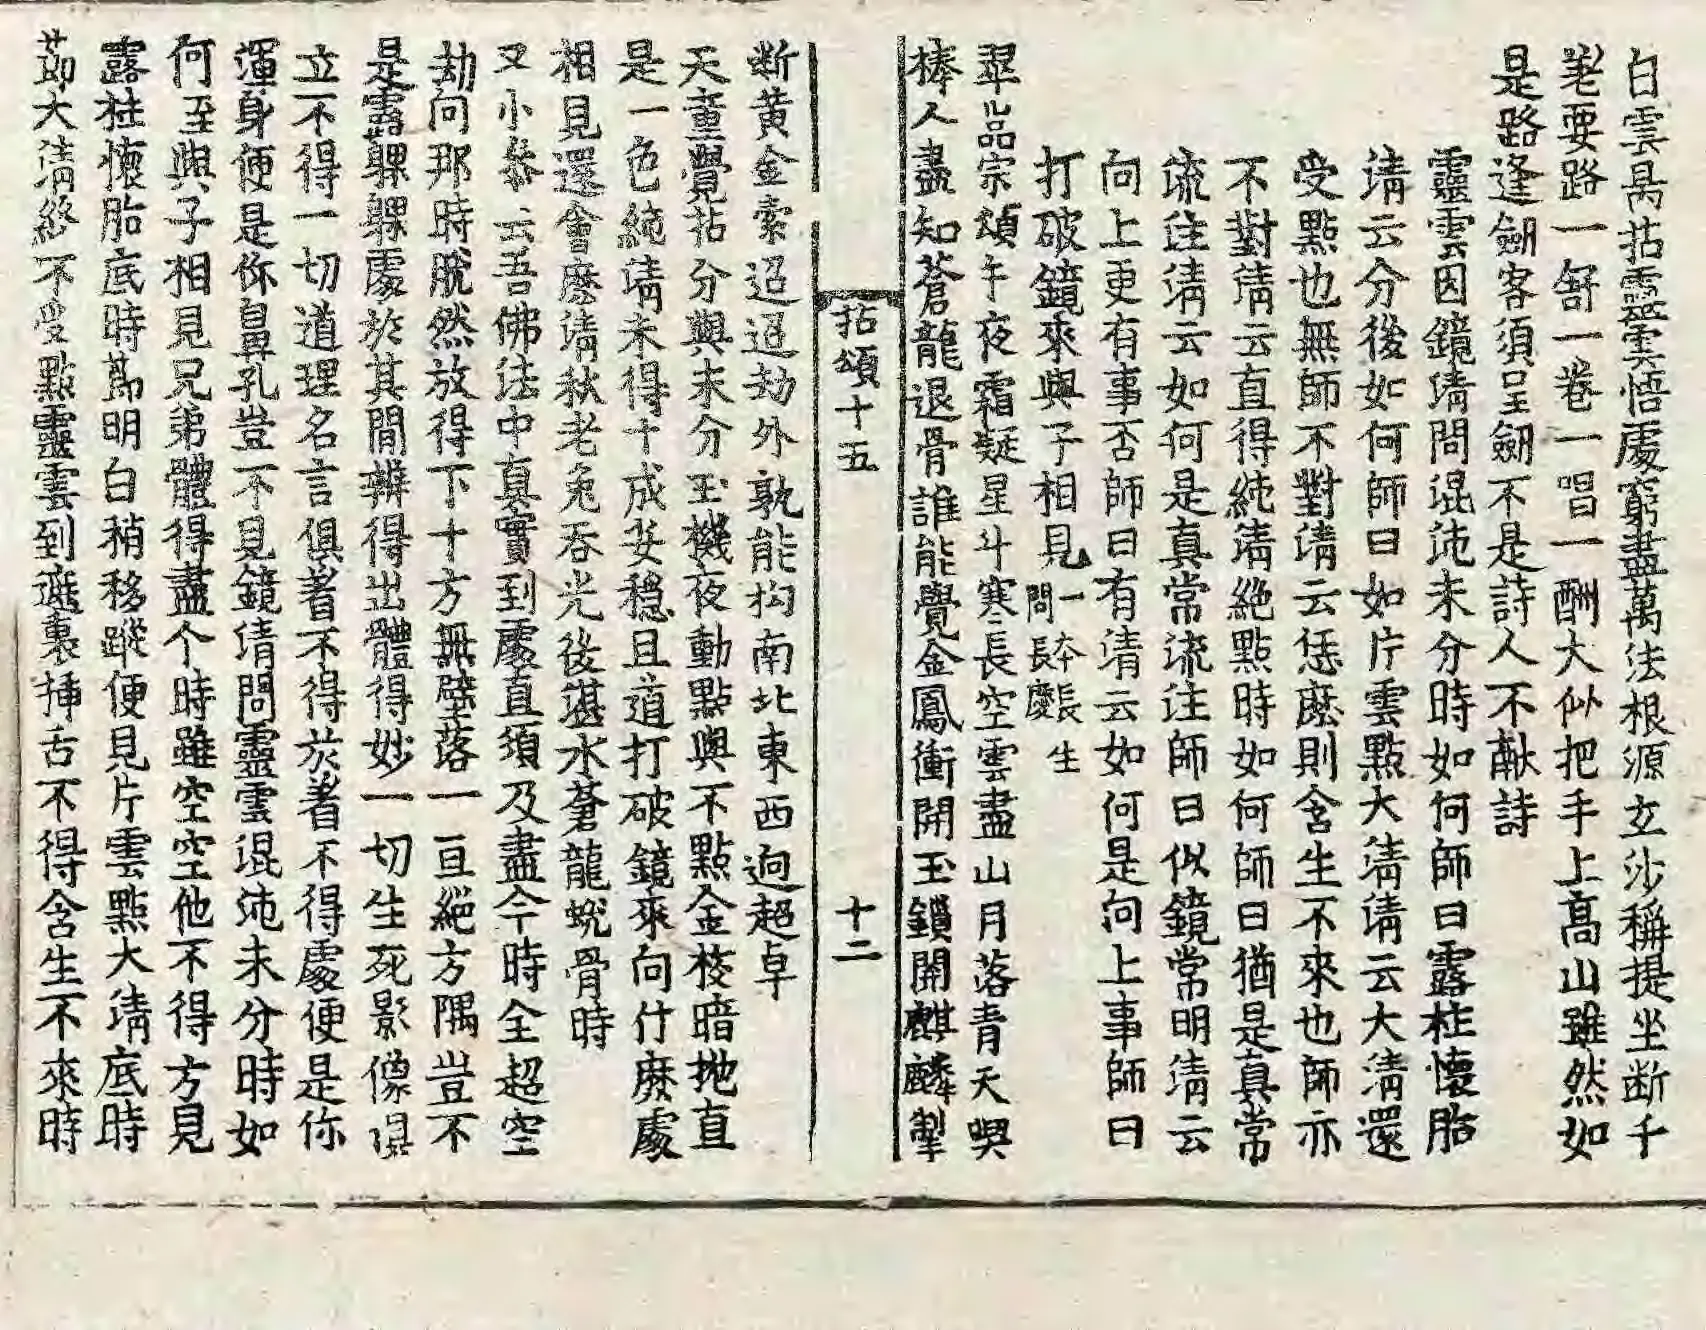 白雲昺拈靈雲悟處窮盡萬法根源立沙稱提坐断千
差要路一舒一卷一唱一酬大似把手上高山雖然如
是路逢劒客須呈劒不是詩人不献詩
靈雲因鏡清問混沌未分時如何師曰露柱懷胎
清云分後如何師曰如片雲點大清清云大清還
受點也無師不對清云恁麽則含生不來也師亦
不對清云直得純清絶點時如何師曰猶是真常
流注清云如何是真常流注師曰似鏡常明清云
向上更有事否師曰有清云如何是向上事師曰
打破鏡來與子相見一本長生問長慶
翠嵓宗頌午夜霜凝星斗寒長空雲盡山月落青天喫
棒人盡知蒼龍退骨誰能覺金鳳衝開玉鎖開麒麟掣
拈頌十五 十二
断黄金索迢迢劫外孰能拘南北東西逈超卓
天童覺拈分與未分玉機夜動點與不點金梭暗抛直
是一色純清未得十成妥穏且道打破鏡來向什麽處
相見還會麽清秋老兔吞光後湛水蒼龍蛻骨時
又小叅云吾佛法中真實到處直須及盡今時全超空
劫向那時脫然放得下十方無壁落一亘絶方隅豈不
是露躶躶處於其間辨得出體得妙一切生死影像混
立不得一切道理名言俱着不得於着不得處便是你
渾身便是你鼻孔豈不見鏡清問靈雲混沌未分時如
何至與子相見兄弟體得盡个時雖空空他不得方見
露柱懷胎底時節明白稍移蹤便見片雲點大清底時
莭大清終不受點靈雲到遮裏揷舌不得含生不來時